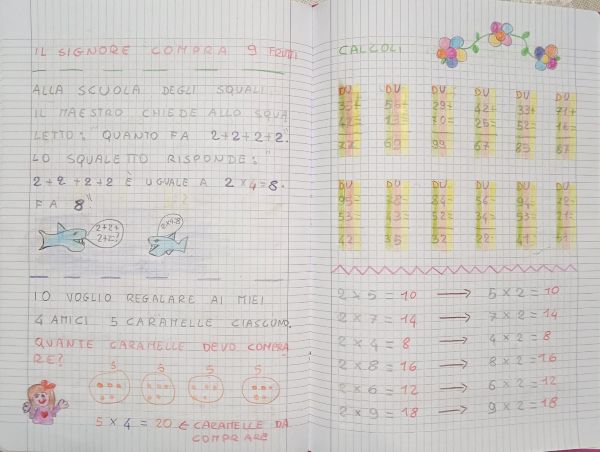 IL SIGNORE COMPRA 9 FRUTTI
ALLA SCUOLA DEGLI SQUALI
IL MAESTRO CHIEDE ALLO SQUA
LETTO: "QUANTO FA 2+2+2+2".
LO SQUALETTO RISPONDE:"
2+2+2+2 È UGUALE A 2×4=8.
FA 8"
2+2+
2+2=?
2×4=8
IO VOGLIO REGALARE AI MIEI
4 AMICI 5 CARAMELLE CIASCUNO.
QUANTE CARAMELLE DEVO COMPRA
RE?
5 5 5 5
5 × 4 = 20 ← CARAMELLE DA
COMPRARE
CALCOLI
DU DU DU DU DU DU
35+ 56+ 29+ 42+ 33+ 71+
42= 13= 70= 25= 52= 16=
77 69 99 67 85 87
DU DU DU DU DU DU
95- 78- 84- 56- 94- 72-
53= 43= 52= 34= 53= 21=
42 35 32 22 41 51
2 × 5 = 10 → 5 × 2 = 10
2 × 7 = 14 → 7 × 2 = 14
2 × 4 = 8 → 4 × 2 = 8
2 × 8 = 16 → 8 × 2 = 16
2 × 6 = 12 → 6 × 2 = 12
2 × 9 = 18 → 9 × 2 = 18